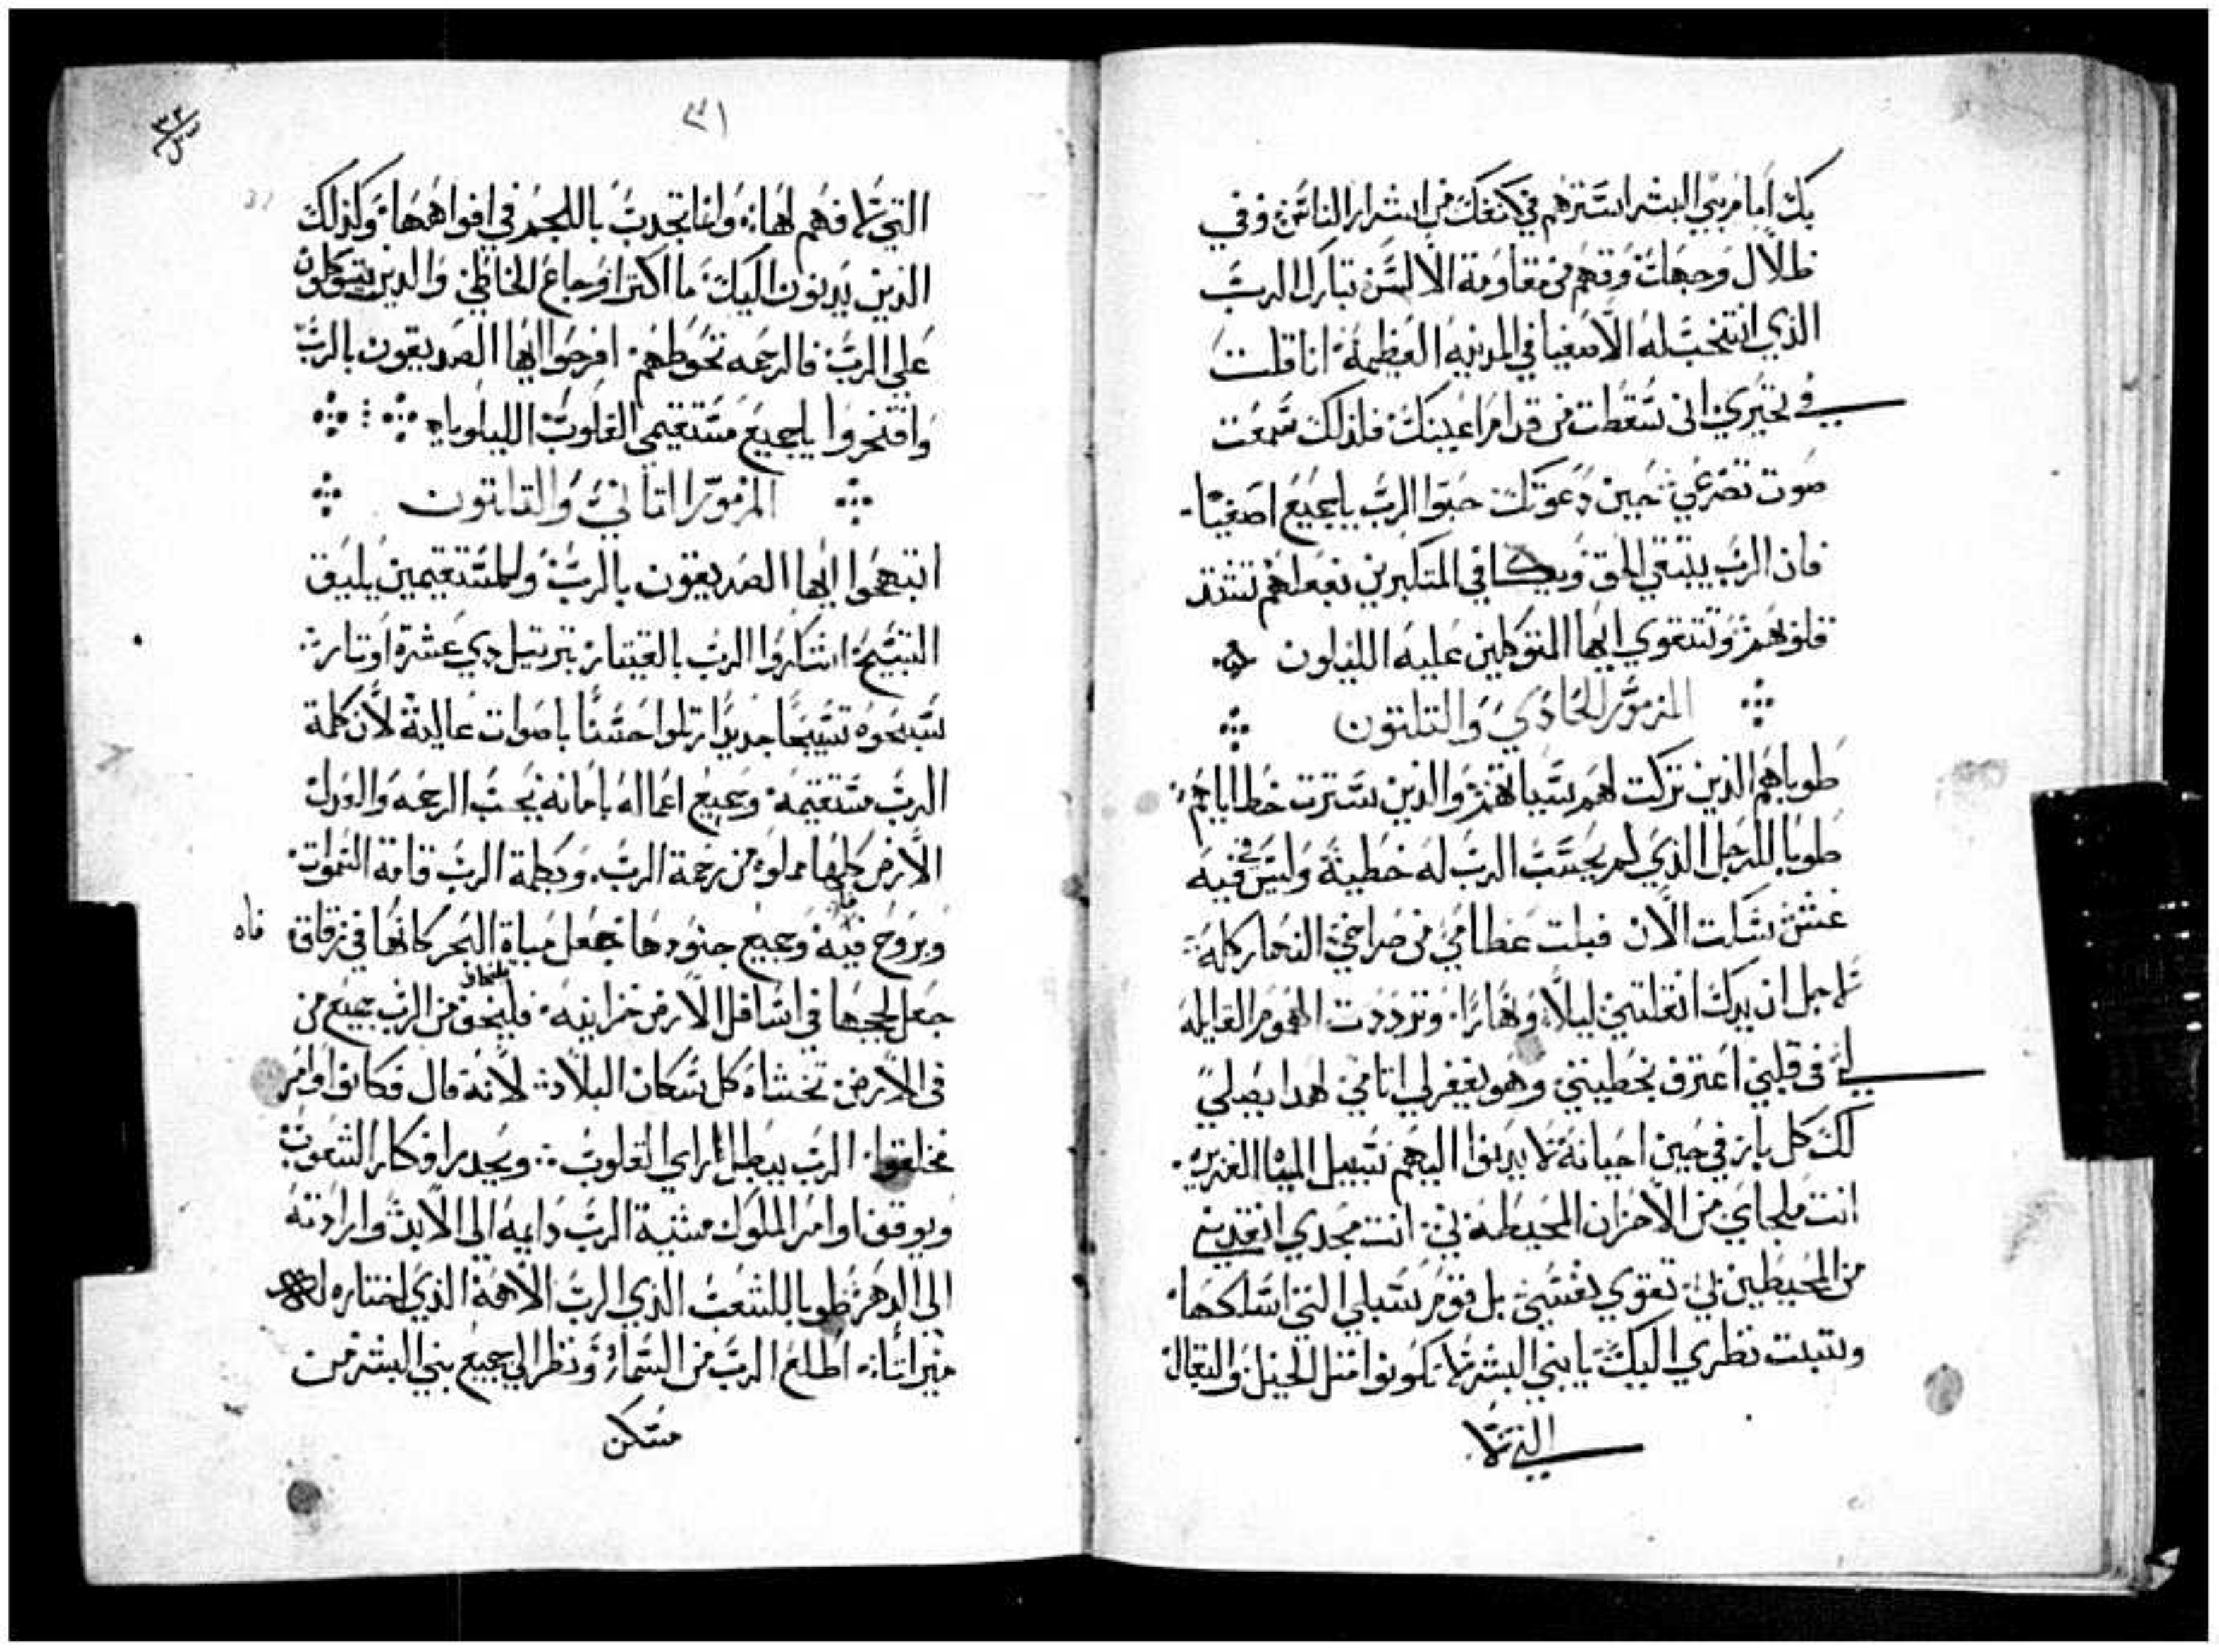 بك امام بني البشر استرهم في كنفك من اشرار الناس وفي
ظلال وجهك وقهم من مقاومة الالسن تبارك الرب
الذي انتخب له الاصفيا في المدينه العظيمة انا قلت
في تحيري اني سقطت من قدام اعينك فلذلك سمعت
صوت تضرعي حين دعوتك حبوا الرب يا جميع اصفيا
فان الرب يبتغي الحق ويكافي المتكبرين بفعلهم تشتد
قلوبهم وتتقوي ايها المتوكلين عليه الليلون
المزمور الحادي والتلتون
طوباهم الذين تركت لهم سياتهم والذين سترت خطاياهم
طوبا للرجل الذي لم يحسب الرب له خطية وليس في فيه
غش سكت الان فبلت عظامي من صراخي النهار كله
لاجل ان يدك اتقلتني ليلا ونهارا وترددت الهموم القايله
لي في قلبي اعترف بخطيتي وهو يغفر لي اتامي لهدا يصلي
لك كل بار في حين احيانه لا يدنوا اليهم سبيل المياا الغزيره
انت ملجاي من الاحزان المحيطه بي انت مجدي انقدني
من المحيطين بي تقوي نفسي بل قوم سبلي التي اسلكها
وتتبت نظري اليك يا بني البشر لا تكونوا متل الخيل والبغال
التي لا
٣١
التي لا فهم لها وانما تجدب باللجم في افواهها وكذلك
الذين يدنون اليك ما اكتر اوجاع الخاطي والدين يتوكلون
علي الرب فالرحمه تحوطهم افرحوا ايها الصديقون بالرب
وافتخروا يا جميع مستقيمي القلوب الليلوياه
المزمور التاني والتلتون
ابتهجوا ايها الصديقون بالرب وللمستقيمين يليق
التسبيح اشكروا الرب بالقيتار بترتيل دي عشرة اوتار
سبحوه تسبيحا جديدا رتلوا حسنا باصوات عالية لان كلمة
الرب مستقيمة وجميع اعماله بامانه يحب الرحمه والعدل
الارض كلها مملوه من رحمة الرب وبكلمة الرب قامة السموات
وبروح فيه وجميع جنودها جعل مياه البحر كانها في زقاق فاه
جعل لججها في اسافل الارض خزاينه فليخف من الرب جميع من
في الارض تخشاه كل سكان البلاد لانه قال فكانوا وامر
فخلقوا الرب يبطل اراي القلوب ويجدر افكار الشعوب
ويوقف اوامر الملوك مشية الرب دايمه الي الابد وارادته
الي الدهر طوبا للشعب الذي الرب الاهه الذي اختاره له
ميراتا اطلع الرب من السما ونظر الي جميع بني البشر من
مسكن